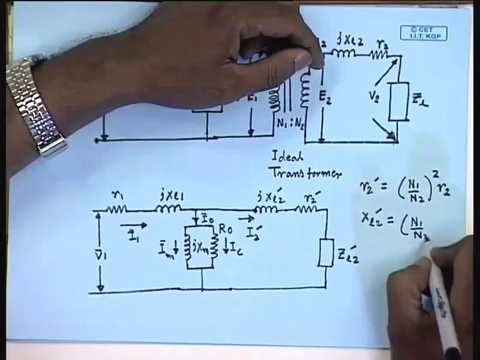 © CET
I.I.T. KGP
jxl2 r2
E1 E2 V2 Z̄L
N1 : N2
Ideal
Transformer
r1 jxl1 jxl2′ r2′
V̄1 Ī1 Ī0 I2′
Īm jxm R0 Ic Z̄L2′
r2′ = (N1/N2)² r2
xl2′ = (N1/N2